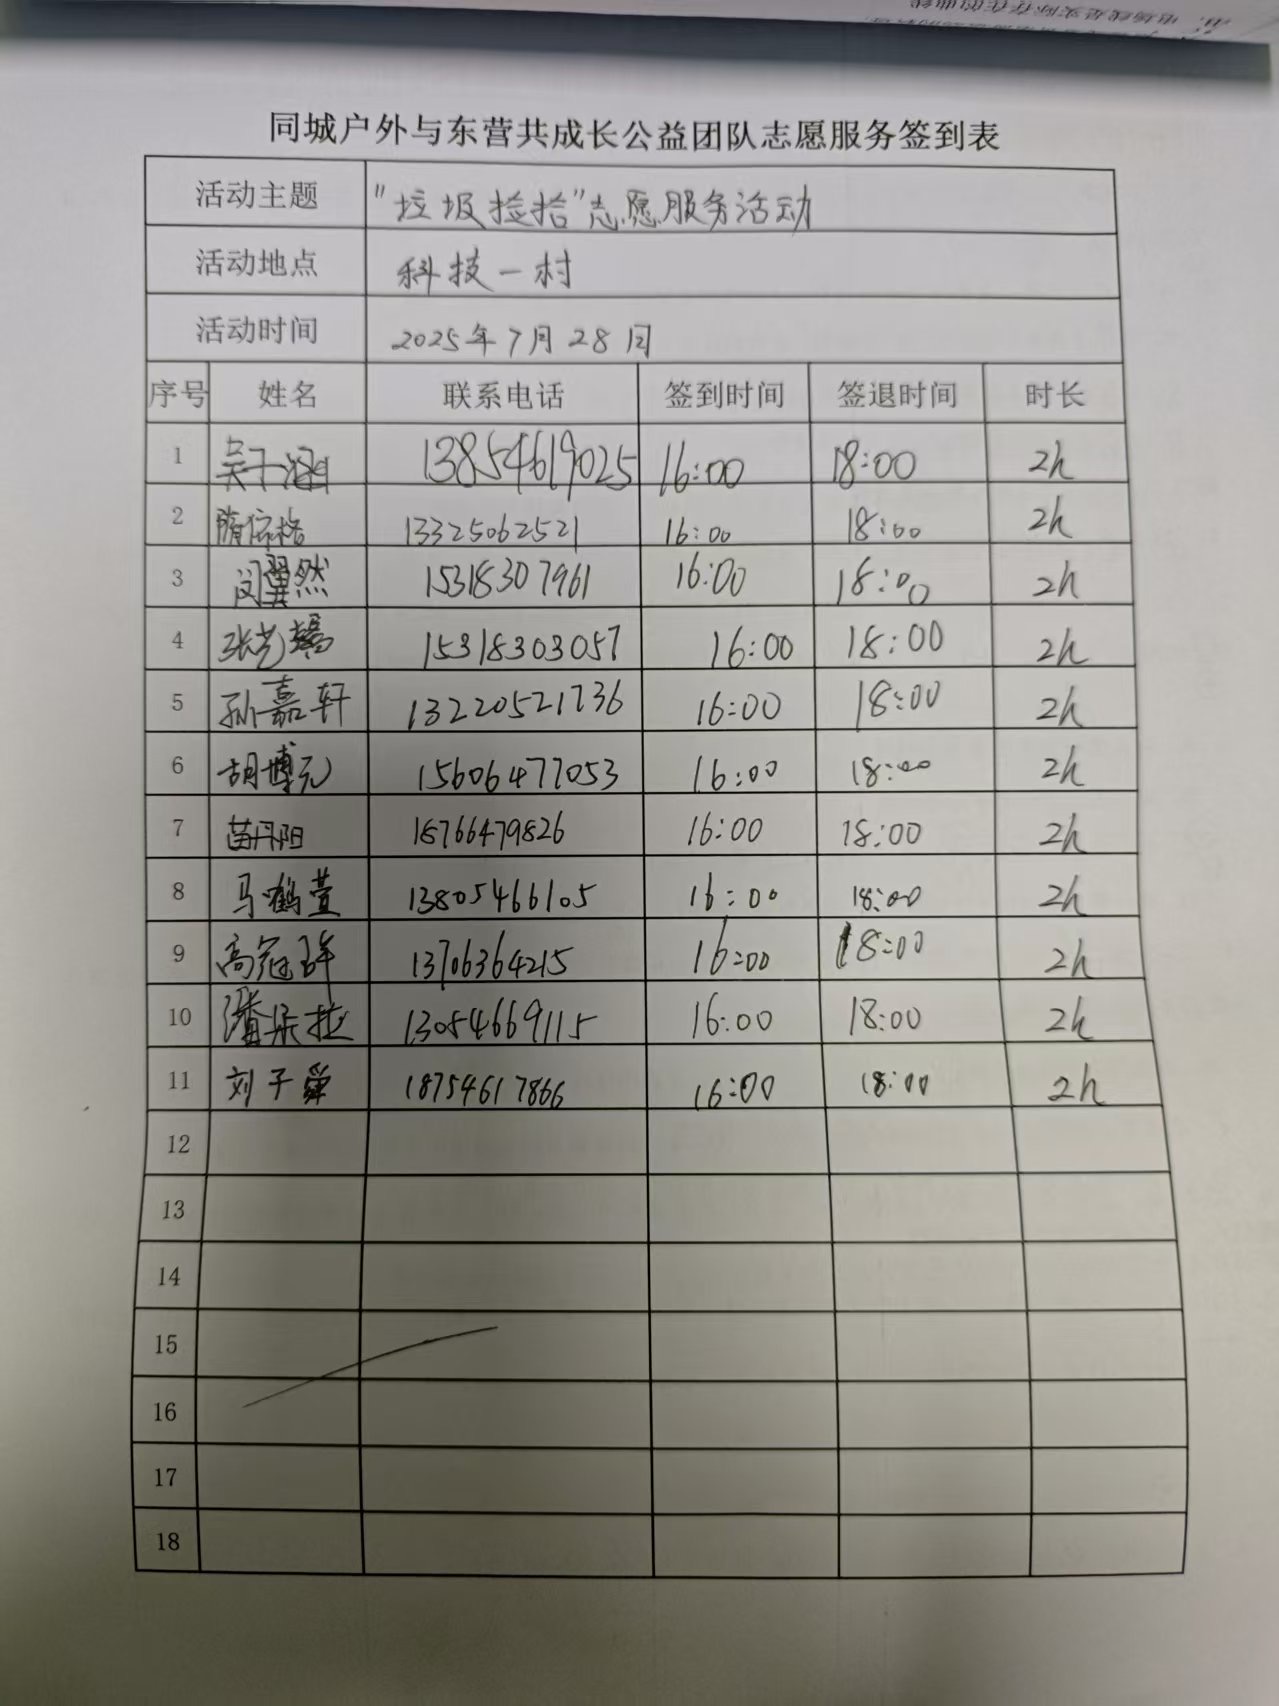 同城户外与东营共成长公益团队志愿服务签到表
活动主题 "垃圾捡拾"志愿服务活动
活动地点 科技一村
活动时间 2025年7月28日
序号 姓名 联系电话 签到时间 签退时间 时长
1 吴子涵 13854619025 16:00 18:00 2h
2 隋依格 13325062521 16:00 18:00 2h
3 闵翼然 15318307961 16:00 18:00 2h
4 张艺 15318303057 16:00 18:00 2h
5 孙嘉轩 13220521736 16:00 18:00 2h
6 胡博元 15606477053 16:00 18:00 2h
7 苗丹阳 18766479826 16:00 18:00 2h
8 马鹤萱 13805466105 16:00 18:00 2h
9 高冠 13706364215 16:00 18:00 2h
10 潘朵拉 13054669115 16:00 18:00 2h
11 刘子舜 18754617866 16:00 18:00 2h
12
13
14
15
16
17
18